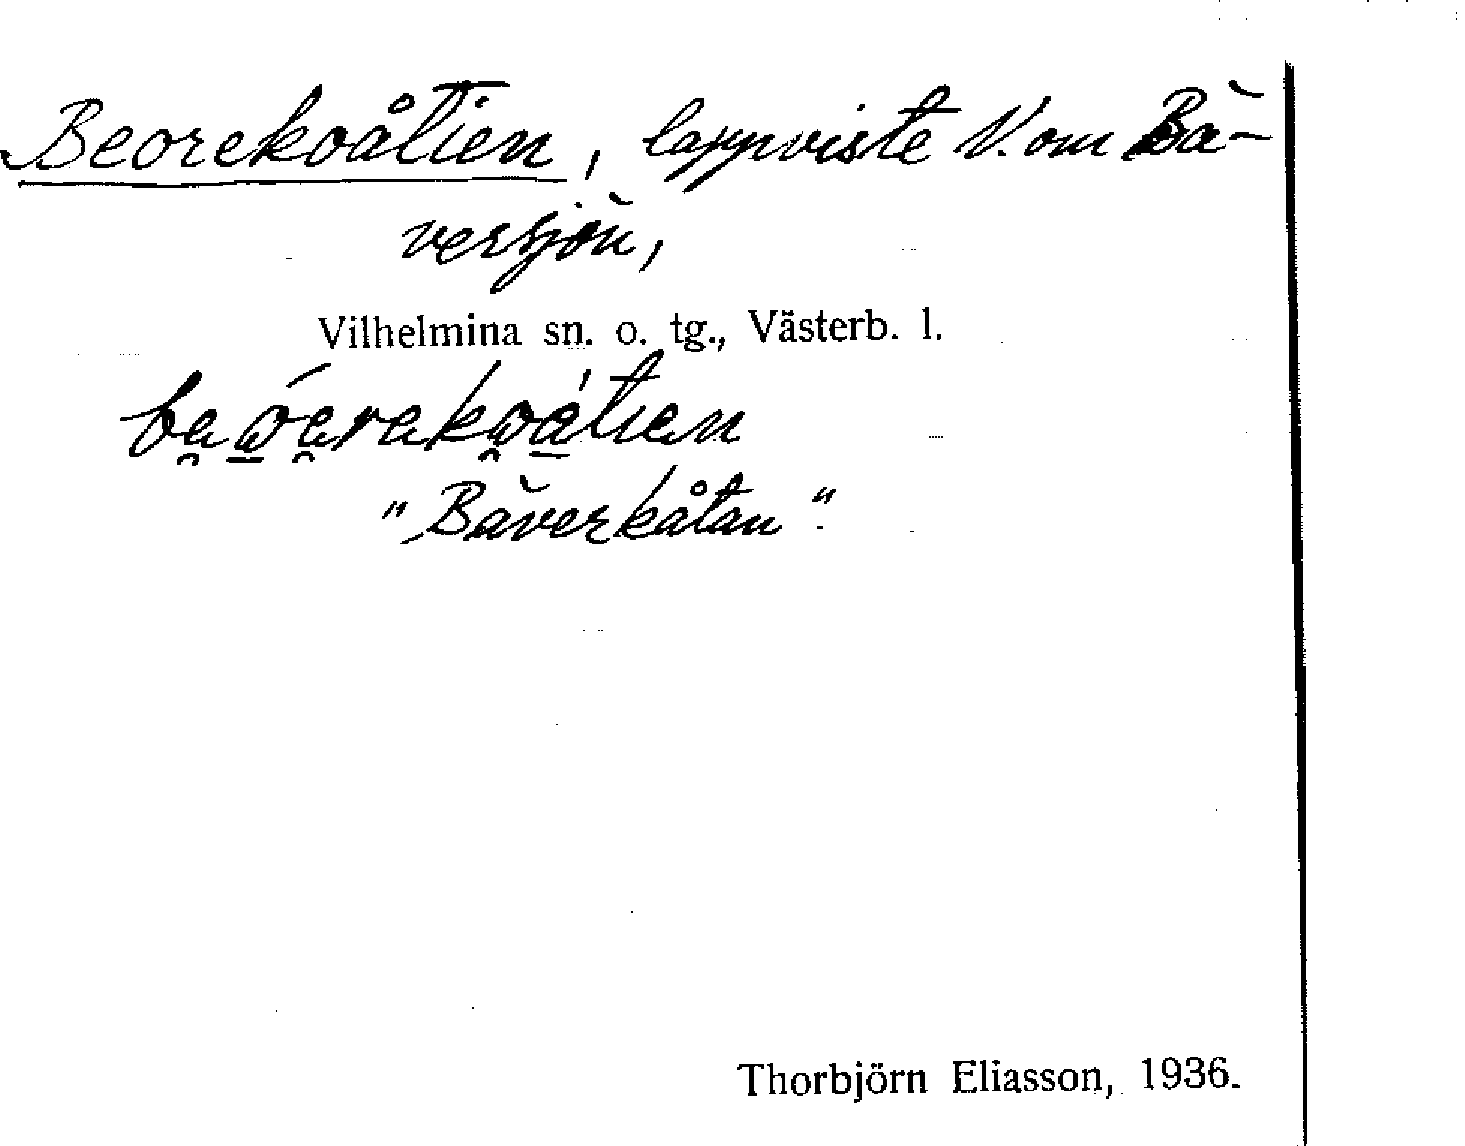 Beorekoåtien, lappviste V. om Bä-
versjön,
Vilhelmina sn. o. tg., Västerb. l.
"Bäverkåtan".
Thorbjörn Eliasson, 1936.